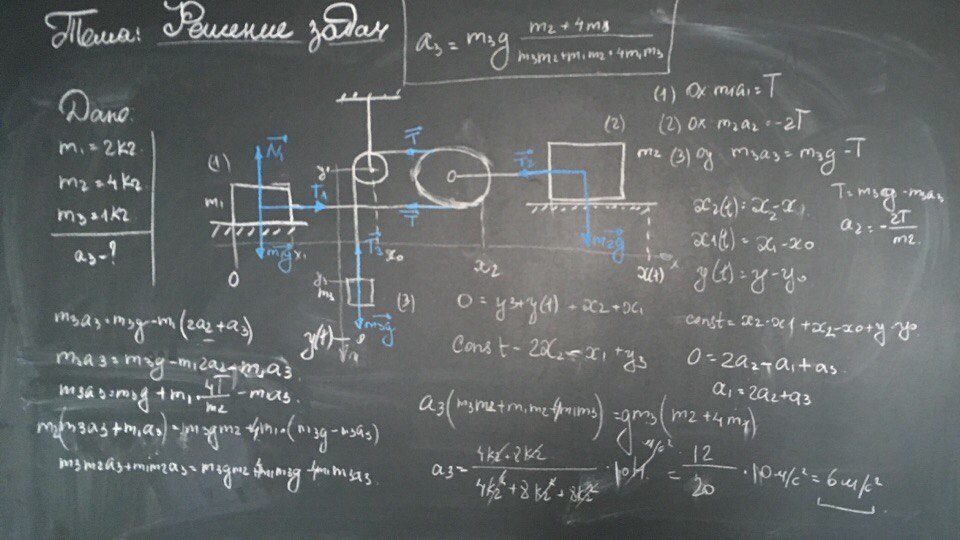 Тема: Решение задач
a₃ = m₃g (m₂ + 4m₃)/(m₃m₂ + m₁m₂ + 4m₁m₃)
Дано:
m₁ = 2кг
m₂ = 4кг
m₃ = 1кг
a₃ - ?
(1)
m₁
N₁
T₁
m₁g
x₁
0
y'
T
T
T₃
x₀
y₃
m₃
(3)
m₃g
y(t)
0
x₂
T₂
(2)
m₂
m₂g
x(t)
x
(1) Ox m₁a₁ = T
(2) Ox m₂a₂ = -2T
(3) Oy m₃a₃ = m₃g - T
T = m₃g - m₃a₃
a₂ = -2T/m₂
x₂(t) = x₂ - x₁
x₁(t) = x₁ - x₀
y(t) = y - y₀
0 = y₃ + y(t) + x₂ + x₁
const = 2x₂ - x₁ + y₃
const = x₂ - x₁ + x₂ - x₀ + y - y₀
0 = 2a₂ - a₁ + a₃
a₁ = 2a₂ + a₃
m₃a₃ = m₃g - m₁(2a₂ + a₃)
m₃a₃ = m₃g - m₁2a₂ - m₁a₃
m₃a₃ = m₃g + m₁ · 4T/m₂ - m₁a₃
m₂(m₃a₃ + m₁a₃) = m₃gm₂ + 4m₁ · (m₃g - m₃a₃)
m₃m₂a₃ + m₁m₂a₃ = m₃gm₂ + 4m₁m₃g - 4m₁m₃a₃
a₃(m₃m₂ + m₁m₂ + 4m₁m₃) = gm₃(m₂ + 4m₁)
a₃ = (4кг + 8кг)/(4кг² + 8кг² + 8кг²) · 10 м/с² = 12/20 · 10 м/с² = 6 м/с²